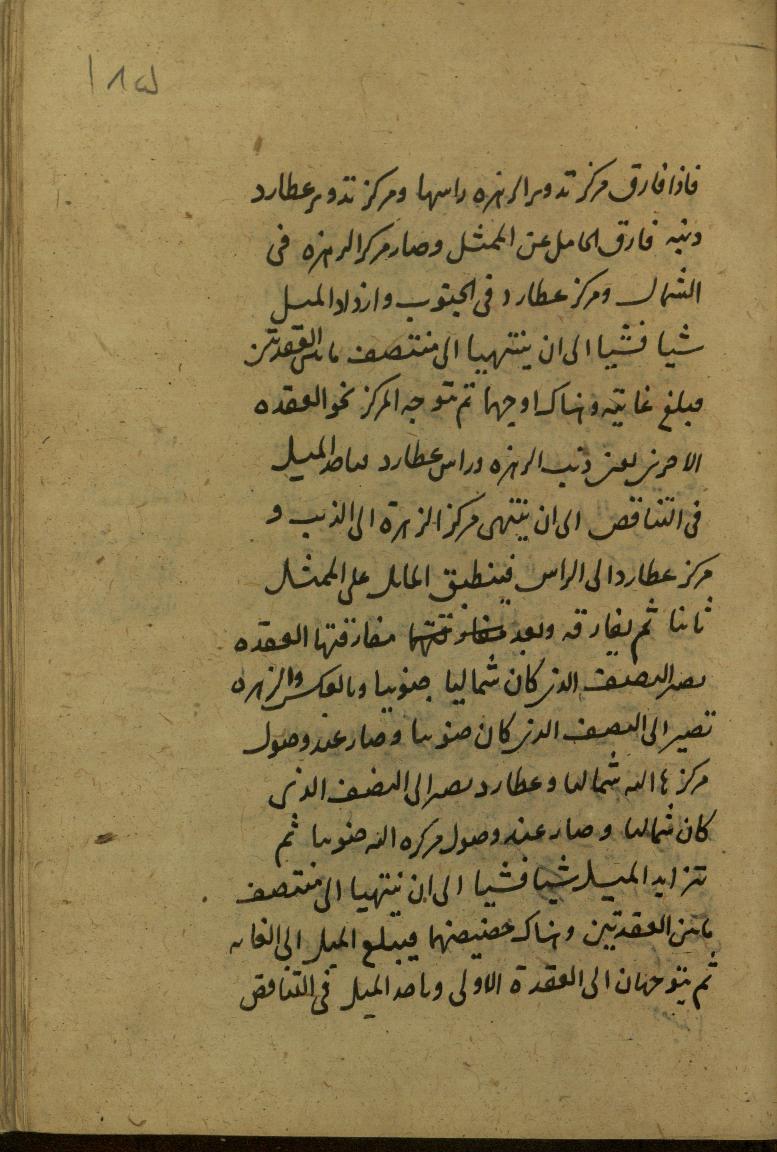 فاذا فارق مركز تدوير الزهره راسها ومركز تدوير عطارد
ذنبه فارق الحامل عن الممثل وصار مركز الزهره فى
الشمال ومركز عطارد فى الجنوب وازداد الميل
شيا فشيا الى ان ينتهيا الى منتصف مابين العقدتين
فيبلغ غايته وهناك اوجهما ثم يتوجه المركز نحو العقده
الاخرى يعنى ذنب الزهره وراس عطارد وياخذ الميل
فى التناقص الى ان ينتهى مركز الزهرة الى الذنب و
مركز عطارد الى الراس فينطبق المايل على الممثل
ثانيا ثم يفارقه وبعد مفارقتها العقده
يصير النصف الذى كان شماليا جنوبيا وبالعكس والزهره
تصير الى النصف الذى كان جنوبيا وصار عند وصول
مركزها اليه شماليا وعطارد يصير الى النصف الذى
كان شماليا وصار عند وصول مركزه اليه جنوبيا ثم
تتزايد الميل شيا فشيا الى ان ينتهيا الى منتصف
مابين العقدتين وهناك حضيضهما فيبلغ الميل الى الغايه
ثم يتوجهان الى العقدة الاولى وياخذ الميل فى التناقص